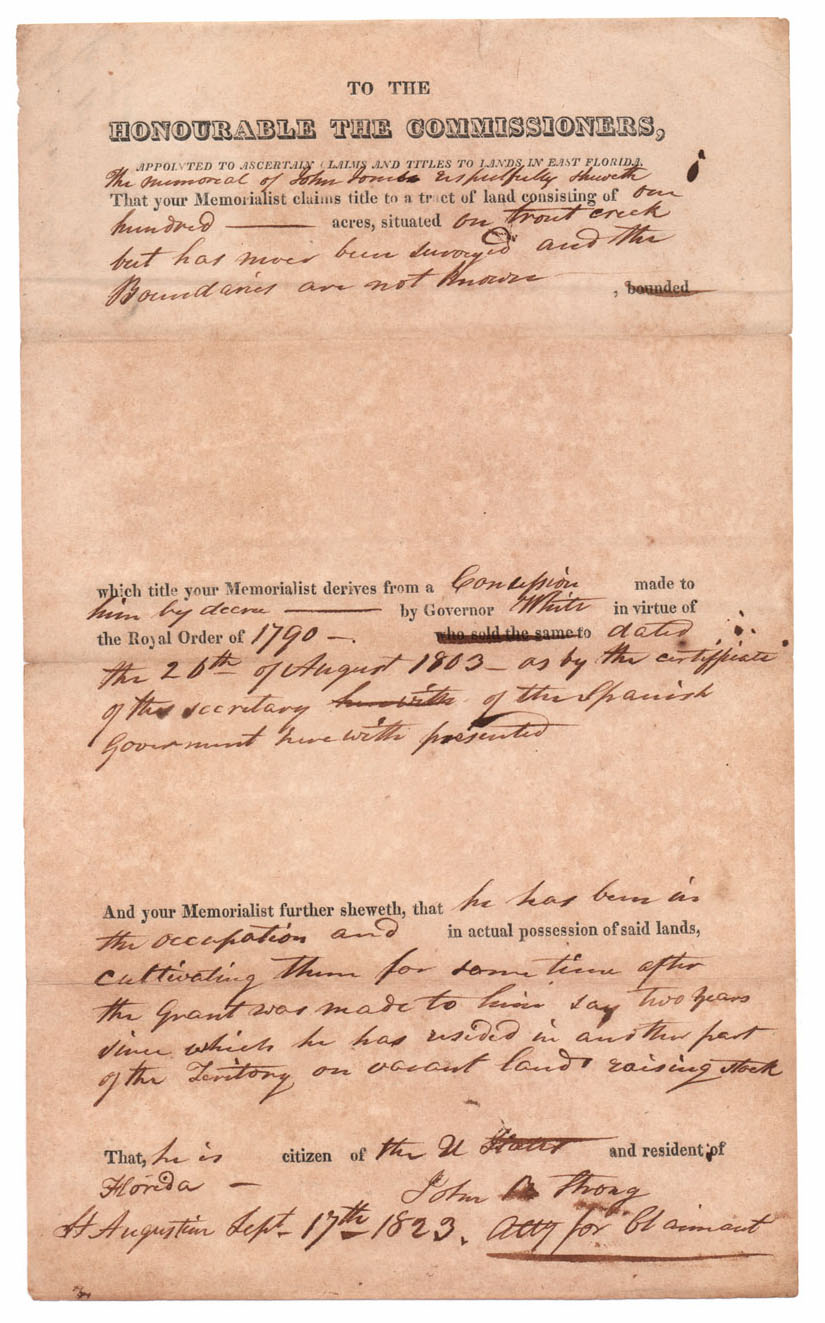 TO THE
HONOURABLE THE COMMISSIONERS,
APPOINTED TO ASCERTAIN CLAIMS AND TITLES TO LANDS IN EAST FLORIDA.
The memorial of John respectfully sheweth
That your Memorialist claims title to a tract of land consisting of one
hundred —— acres, situated on trout creek
but has never been surveyed and the
Boundaries are not Known , bounded
which title your Memorialist derives from a Concession made to
him by decree —— by Governor White in virtue of
the Royal Order of 1790 –. who sold the same to dated
the 26th of August 1803 – as by the certifficate
of the secretary herewith of the Spanish
Goverment herewith presented
And your Memorialist further sheweth, that he has been in
the occupation and in actual possession of said lands,
cultivating them for some time after
the Grant was made to him say two years
since which he has resided in another part
of the Teritory on vacant lands raising stock
That, he is citizen of the U States and resident of
Florida –
John B Strong
St Augustine Sept. 17th 1823. Atty for Claimant